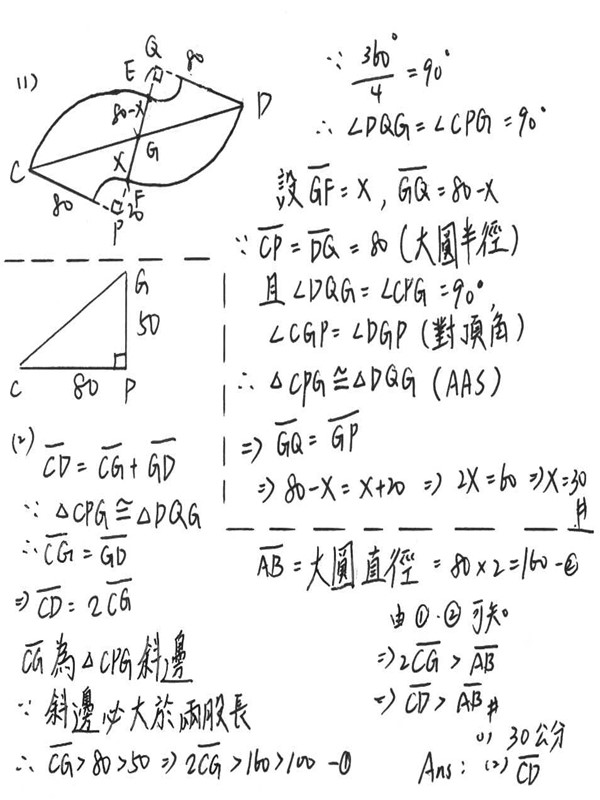 (1)
Q
E
80
80-X
D
G
X
C
F
80
20
P
∵ 360°/4 = 90°
∴ ∠DQG = ∠CPG = 90°
設 GF = X , GQ = 80-X
∵ CP = DQ = 80 (大圓半徑)
且 ∠DQG = ∠CPG = 90°,
∠CGP = ∠DGP (對頂角)
∴ △CPG ≅ △DQG (AAS)
⇒ GQ = GP
⇒ 80-X = X+20 ⇒ 2X = 60 ⇒ X = 30 #
G
50
C
80
P
(2)
CD = CG + GD
∵ △CPG ≅ △DQG
∴ CG = GD
⇒ CD = 2CG
CG 為 △CPG 斜邊
∵ 斜邊必大於兩股長
∴ CG > 80 > 50 ⇒ 2CG > 160 > 100 -①
AB = 大圓直徑 = 80×2 = 160 -②
由 ①、② 可知。
⇒ 2CG > AB
⇒ CD > AB #
(1) 30公分
Ans: (2) CD